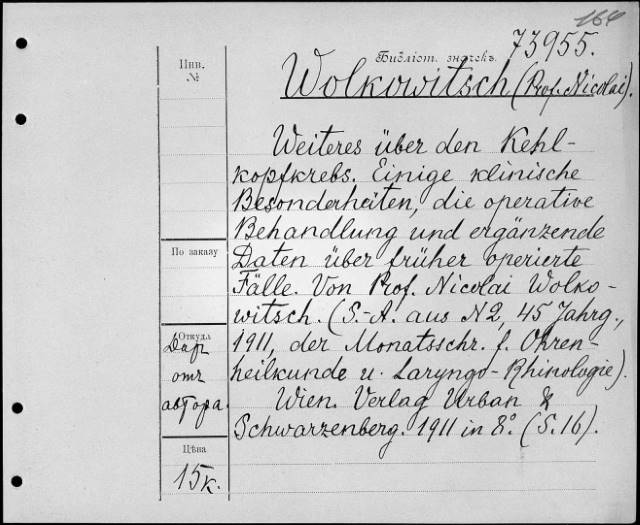 164
73955.
Библіот. значекъ.
Wolkowitsch (Prof. Nicolai).
Инв.
№
Weiteres über den Kehl-
kopfkrebs. Einige klinische
Besonderheiten, die operative
Behandlung und ergänzende
Daten über früher operierte
Fälle. Von Prof. Nicolai Wolko-
witsch. (S.-A. aus N2, 45 Jahrg.,
1911, der Monatsschr. f. Ohren-
heilkunde u. Laryngo-Rhinologie).
Wien. Verlag Urban &
Schwarzenberg. 1911 in 8°. (S. 16).
По заказу
Откуда
Дар
от
автора.
Цѣна
15 к.